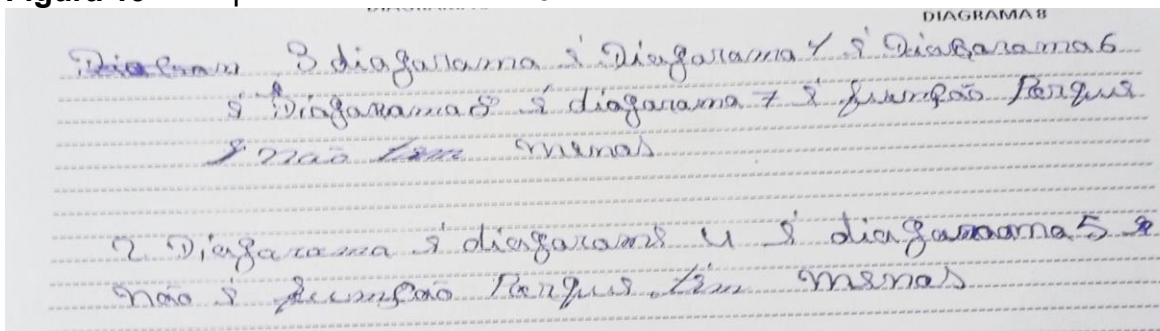 DIAGRAMA 8
3 diagarama e Diagarama 4 e Diagarama 6
e Diagarama 8 e diagarama 7 e fumção Porque
e não tem menos
2. Diagarama e diagarama 4 e diagarama 5 e
não e fumção Porque tem menos